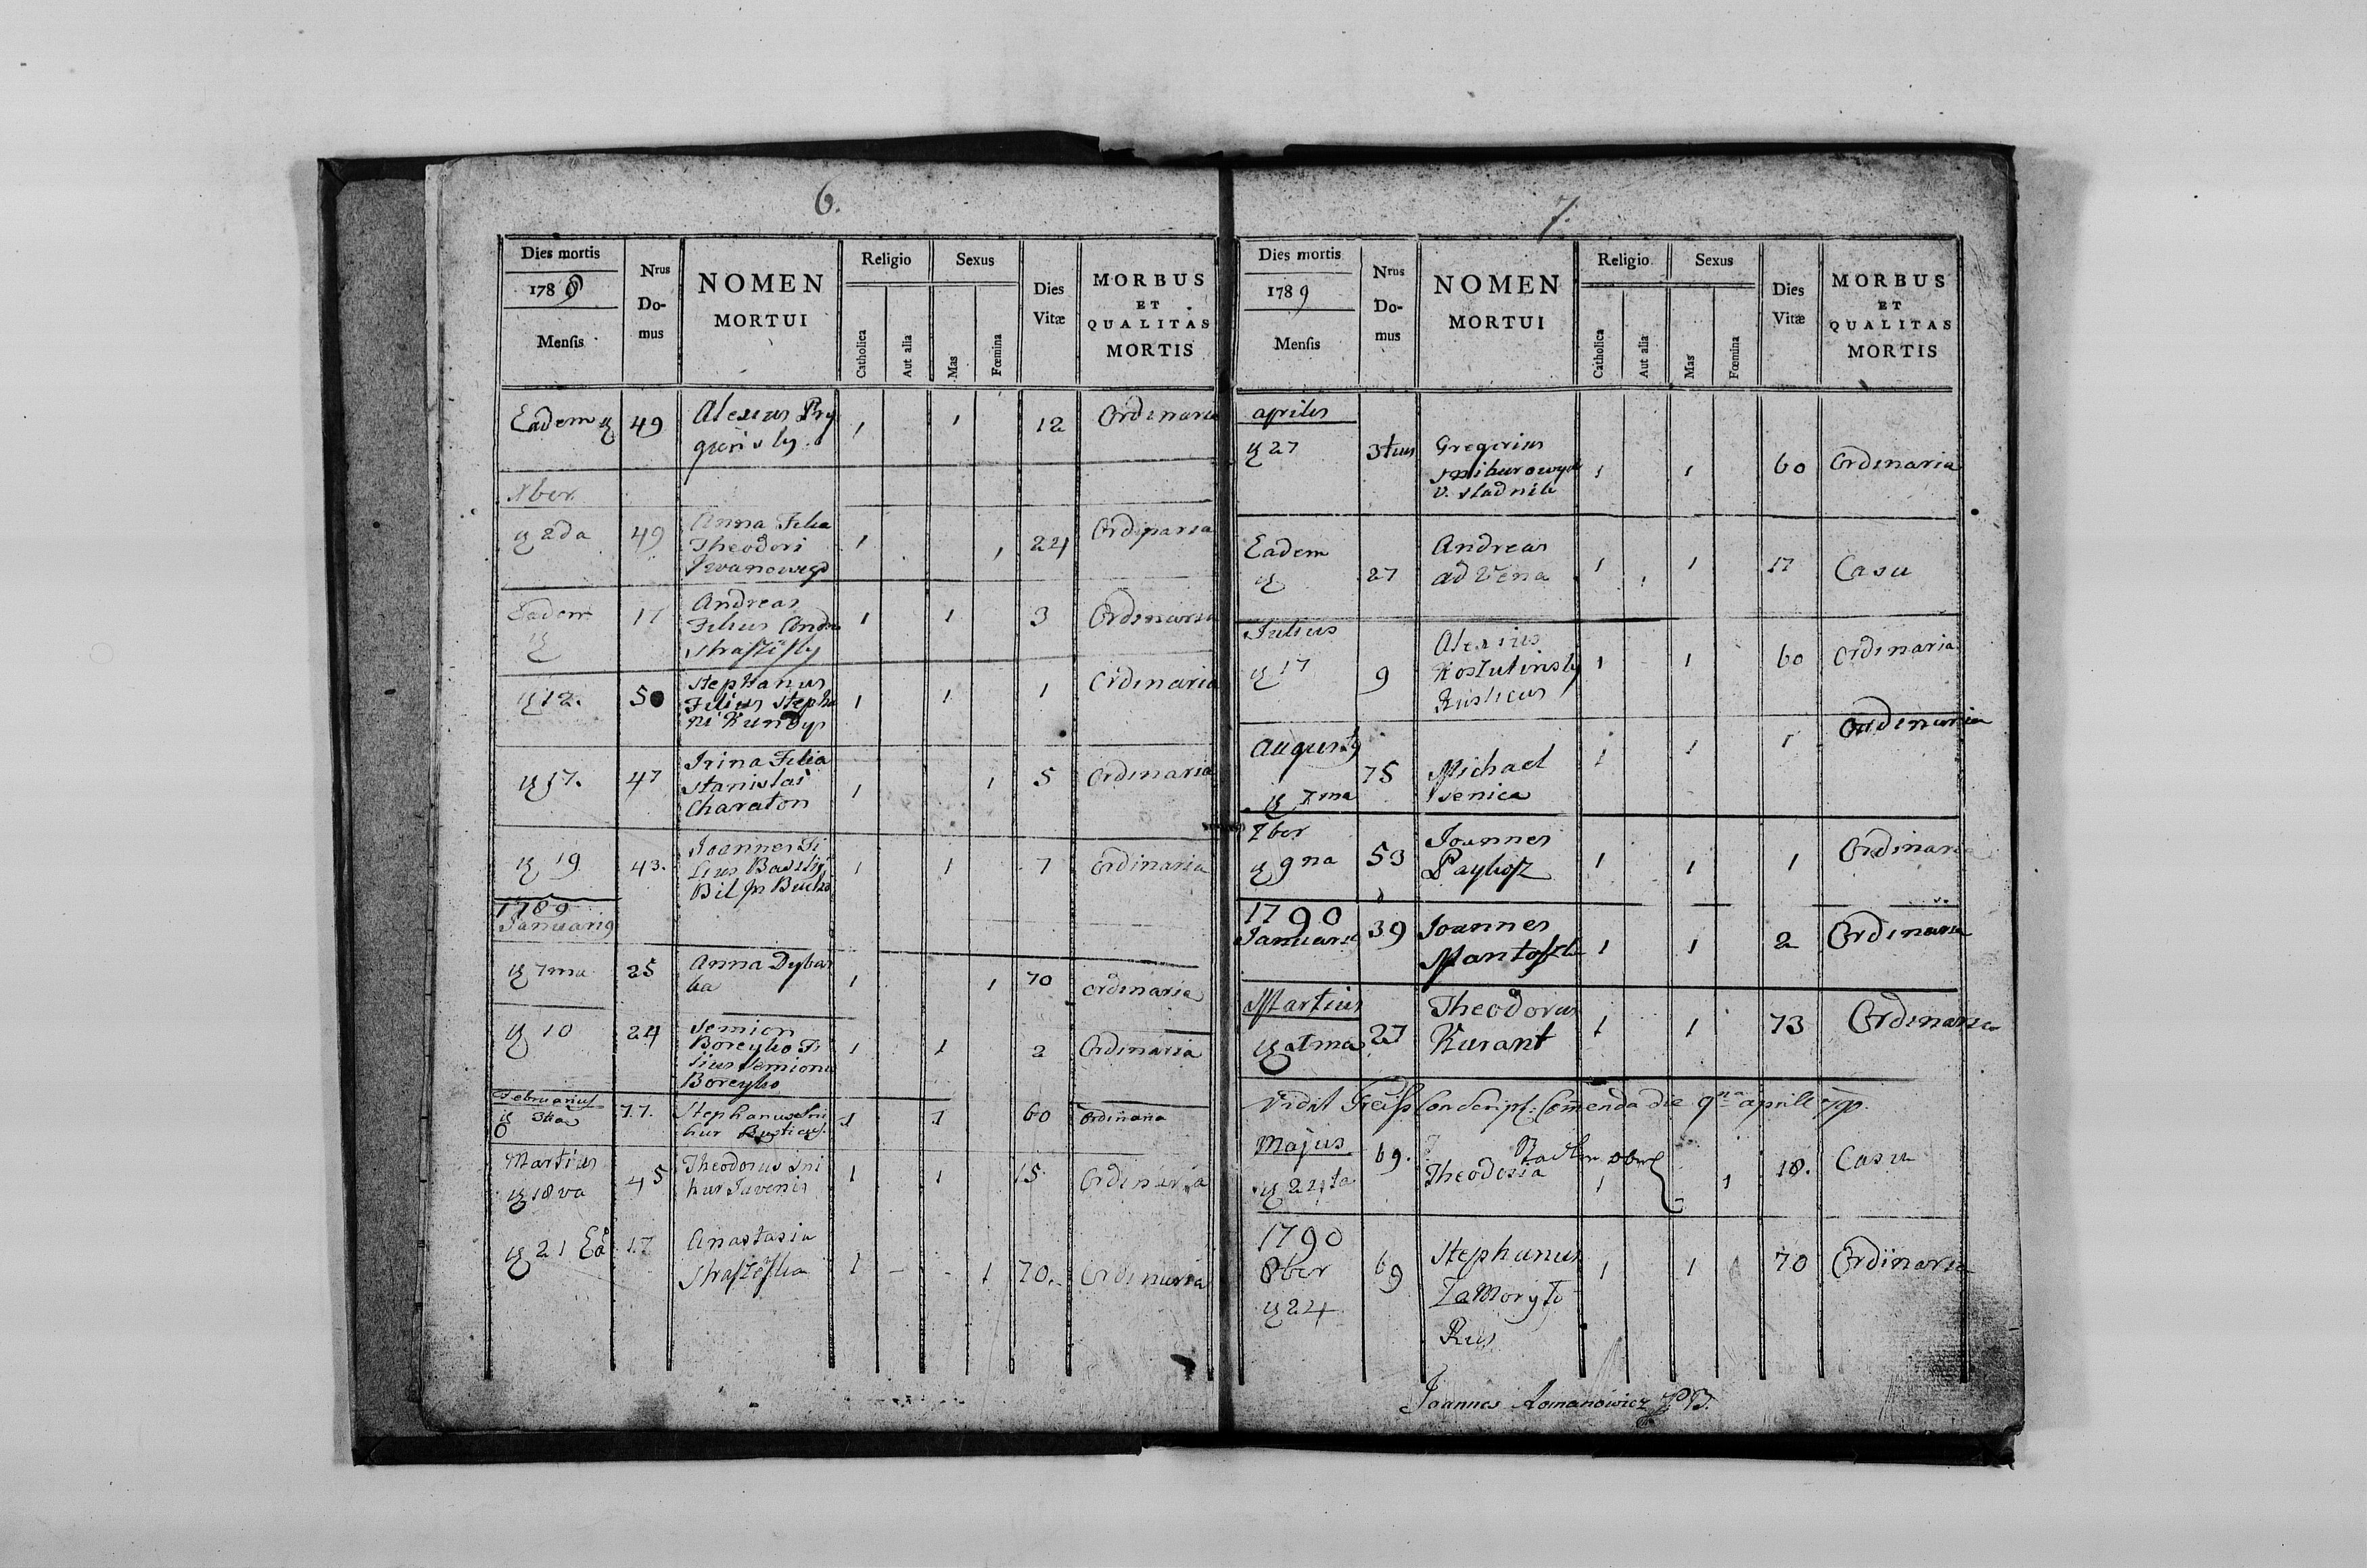 6.
Dies mortis
1789
Mensis
Nrus
Do-
mus
NOMEN
MORTUI
Religio
Catholica
Aut alia
Sexus
Mas
Fœmina
Dies
Vitæ
MORBUS
ET
QUALITAS
MORTIS
Eadem 49 Alexius 1 1 12 Ordinaria
Xber
2da 49 Anna Filia 1 1 24 Ordinaria
Theodori
Iwanowey
Eadem 17 Andreas 1 1 3 Ordinaria
Filius
12. 50 Stephanus 1 1 1 Ordinaria
Filius Stepha
ni Kundys
17. 47 Irina Filia 1 1 5 Ordinaria
Stanislai
Charaton
19 43. Joannes Fi 1 1 7 Ordinaria
lius Basilij
1789
Januarig
7ma 25 Anna Dybas 1 1 70 Ordinaria
ka
10 24 Semion 1 1 2 Ordinaria
Boreyko Fi
lius Semionis
Boreyko
Februarius
3tia 77. Stephanus Sni 1 1 60 Ordinaria
hur Rusticus.
Martius
18va 45 Theodorus Sni 1 1 15 Ordinaria
hur Juvenis
21 17 Anastasia
1 1 70. Ordinaria
7.
Dies mortis
1789
Mensis
Nrus
Do-
mus
NOMEN
MORTUI
Religio
Catholica
Aut alia
Sexus
Mas
Fœmina
Dies
Vitæ
MORBUS
ET
QUALITAS
MORTIS
aprilis
27 3tius Gregorius 1 1 60 Ordinaria
Eadem 27 Andreas 1 1 17 Casu
advena
Julius
17 9 Alexius 1 1 60 Ordinaria
Kostutinsky
Rusticus
Augustg
7ma 75 Michael 1 1 1 Ordinaria
7ber
9na 53 Joannes 1 1 1 Ordinaria
1790
Januarii 39 Joannes 1 1 2 Ordinaria
Martius
27 Theodorus 1 1 73 Ordinaria
Kurant
Vidit Conscript: Commenda die 9na aprill 790.
Majus
24ta 69. Theodosia 1 1 18. Casu
1790
8ber
24 69 Stephanus 1 1 70 Ordinaria
Zamoryto
Rus
Joannes Romanowicz